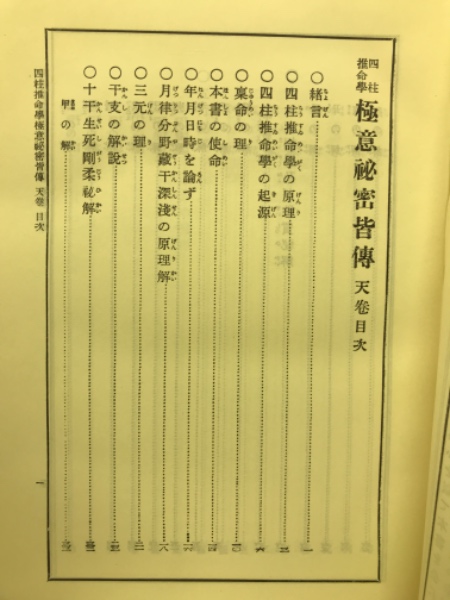 四柱推命學 極意祕密皆傳 天卷目次
〇緒言 一
〇四柱推命學の原理 三
〇四柱推命學の起源 六
〇稟命の理 一〇
〇本書の使命 一四
〇年月日時を論ず 一六
〇月律分野藏干深淺の原理解 一八
〇三元の理 二一
〇干支の解說
〇十干生死剛柔祕解
甲の解
四柱推命學極意祕密皆傳 天卷 目次 一